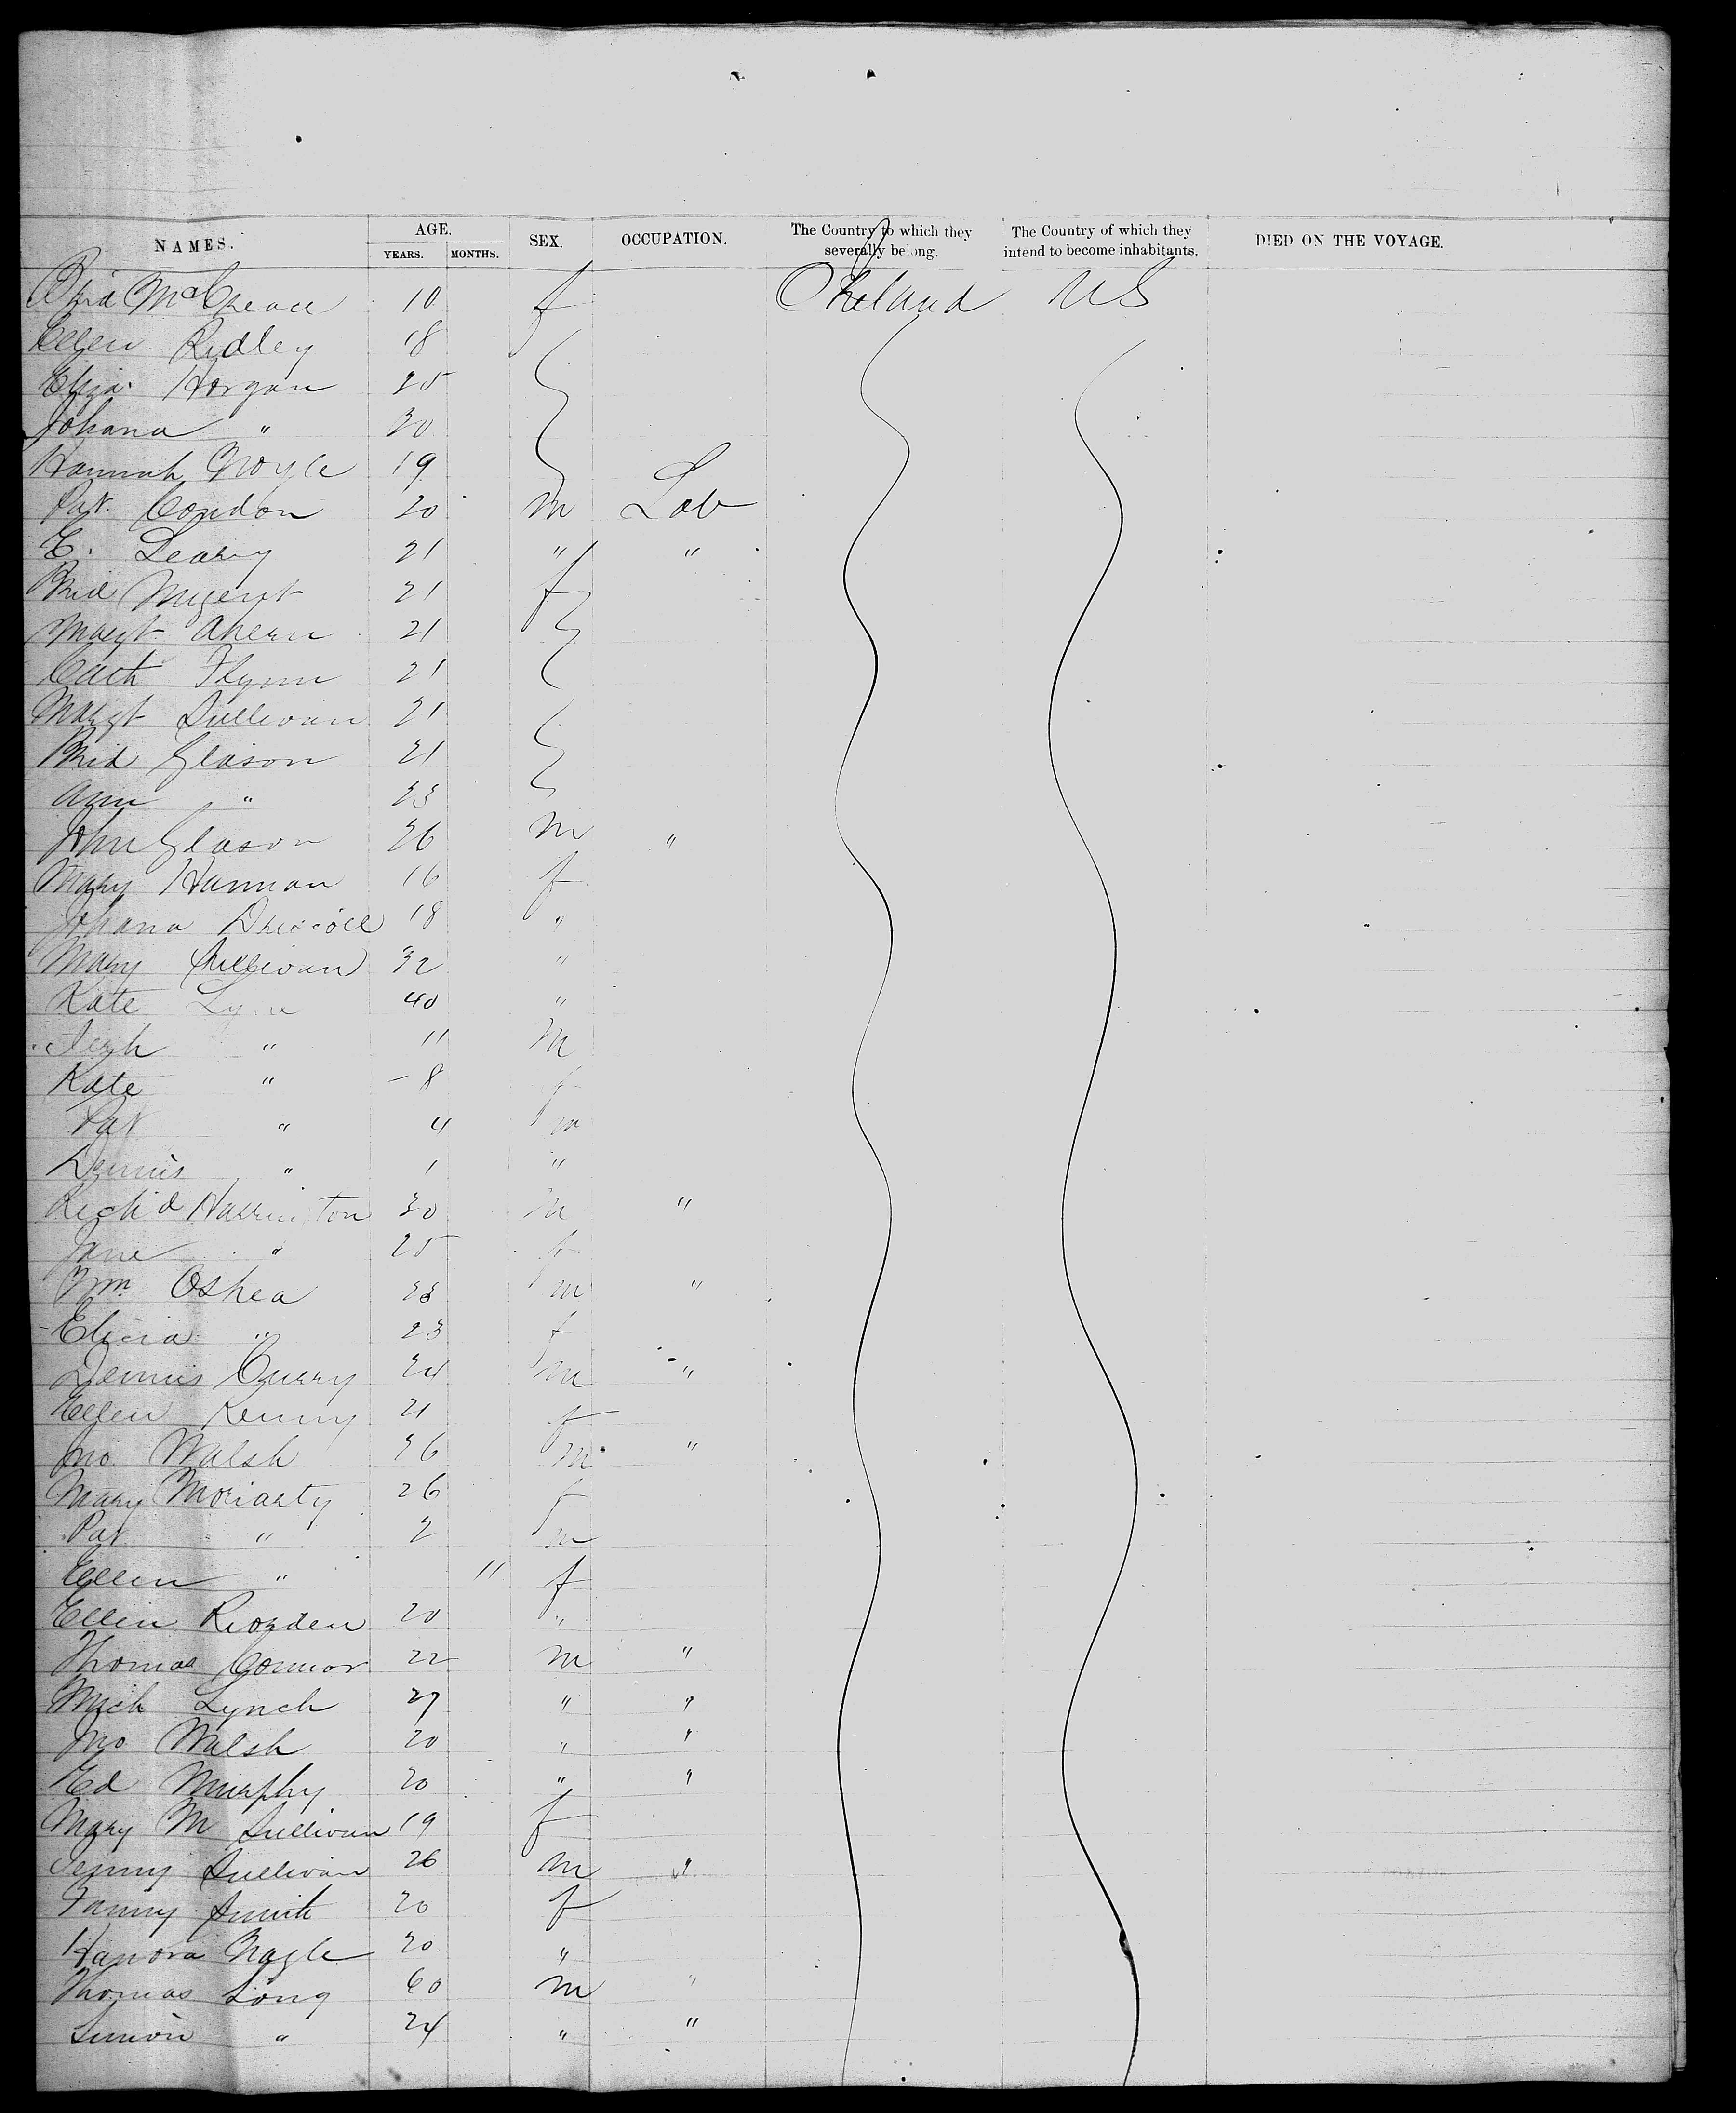 NAMES. AGE. YEARS. MONTHS. SEX. OCCUPATION. The Country to which they severally belong. The Country of which they intend to become inhabitants. DIED ON THE VOYAGE.
Brid 10 f Ireland US
Ellen Ridley 18
Eliza. Horgan 25
Johana " 30
Hannah 19
Pat. Condon 20 m Lab
E. Leary 21 " "
Brid 21 f
Margt Ahern 21
Cath Flynn 21
Margt Sullivan 21
Brid Gleason 21
Ann " 23
John Gleason 26 m "
Mary Hannan 16 f
Johana Driscoll 18 "
Mary Sullivan 32 "
Kate 40 "
" 11 m
Kate " 8 f
Pat " 4 m
Dennis " 1 "
Rich'd Harrington 30 m "
Jane " 25 f
Wm. Oshea 28 m "
Elicia " 23 f
Dennis Curry 24 m "
Ellen Kenny 21 f
Jno. Walsh 26 m "
Mary Moriarty 26 f
Pat " 2 m
Ellen " 11 f
Ellen Riorden 20 "
Thomas Connor 22 m "
Mich Lynch 27 " "
Jno Walsh 20 " "
Ed Murphy 20 " "
Mary M Sullivan 19 f
Sullivan 26 m "
Fanny Smith 20 f
Hanora Nagle 20 "
Thomas Long 60 m "
Simon " 24 " "